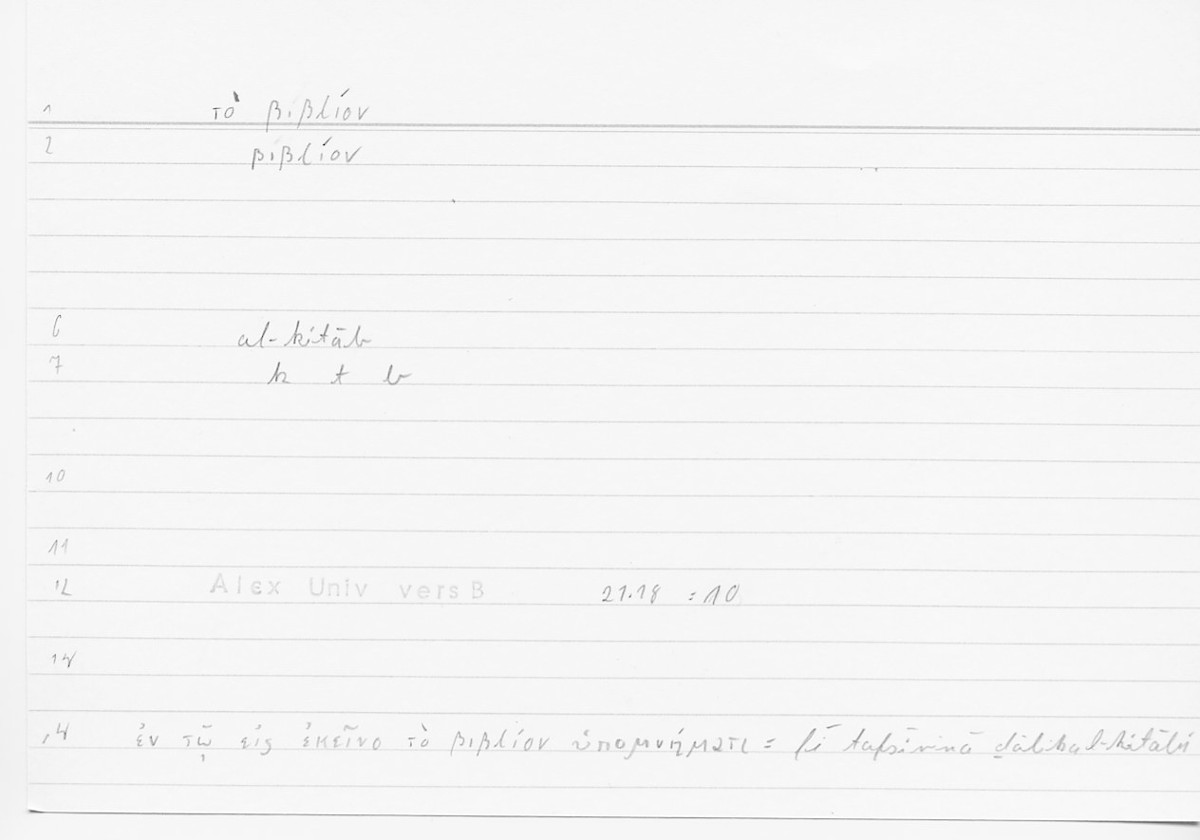 1 τὸ βιβλίον
2 βιβλίον
6 al-kitāb
7 k t b
10
11
12 Alex Univ vers B 21.18 = 10
14 ἐν τῷ εἰς ἐκεῖνο τὸ βιβλίον ὑπομνήματι = fī tafsīrinā ḏālika l-kitābi